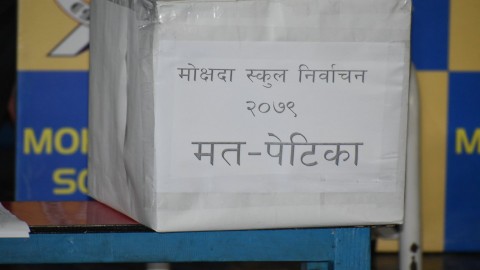 मोक्षदा स्कुल निर्वाचन
२०७९
मत-पेटिका